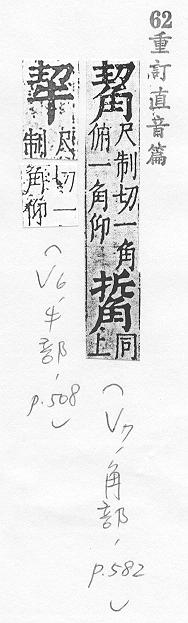 62重訂直音篇
觢 尺制切一角
俯一角仰
同上
(V7,角部,p.582)
尺
制
切一
角仰
(V6,牛部,p.508)